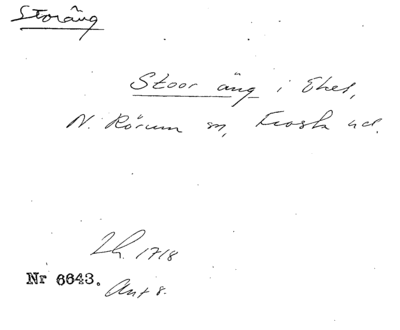 Storäng
Stoor äng i Ekes,
N. Rörum sn, Frosta hd.
Lh. 1718
Nr 6643. Ant 8.